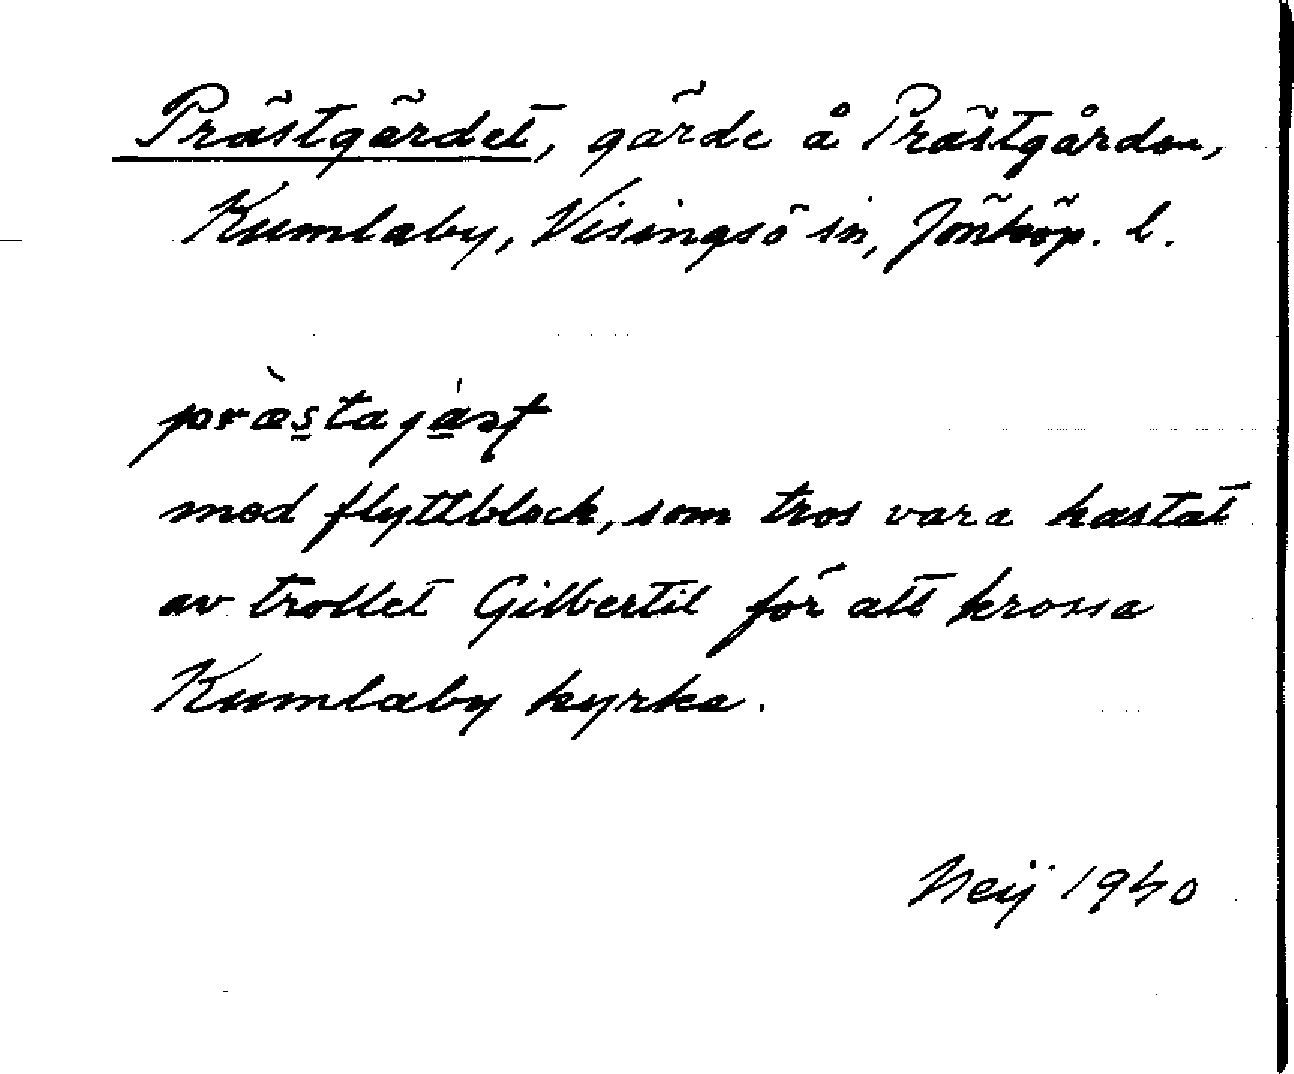 Prästgärdet, gärde å Prästgården,
Kumlaby, Visingsö sn, Jönköp. l.
med flyttblock, som tros vara kastat
av trollet Gilbertil för att krossa
Kumlaby kyrka.
Neij 1940